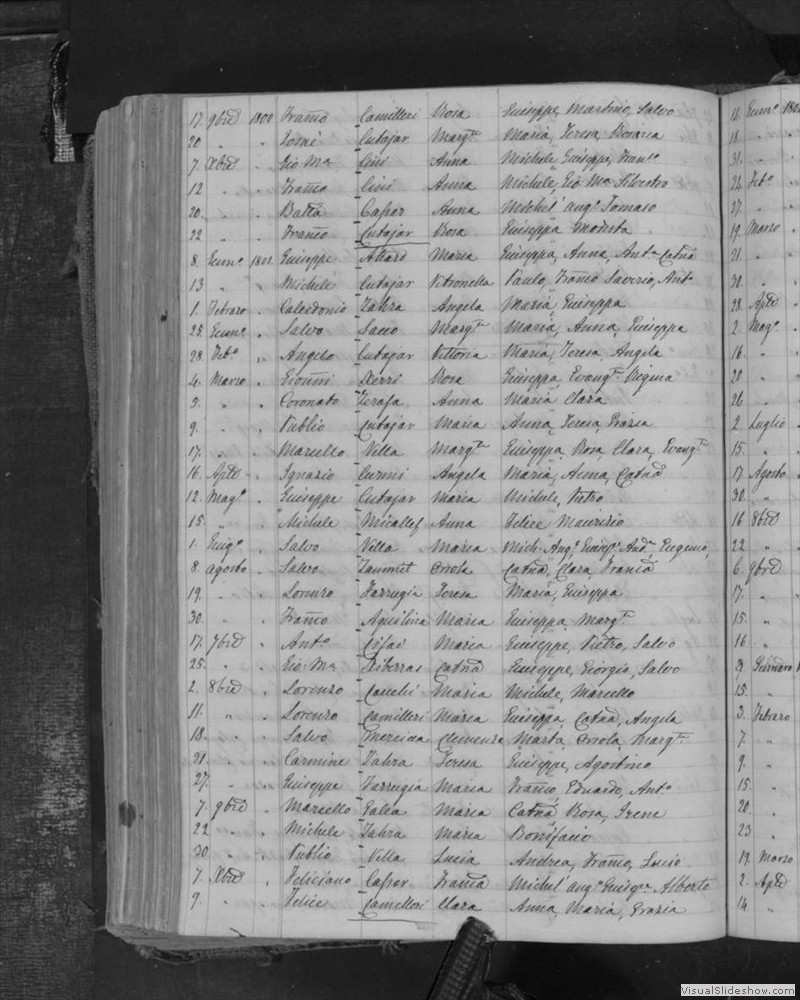 17. 9brē 1800 Franco Camilleri Rosa Giuseppe, Martino, Salvo
20 " . Cosmé Cutajar Margta Maria, Teresa, Rosaria
7. Xbrē . Gio Ma Cini Anna Michele, Giuseppe, Franco
12 " . Franco Cini Anna Michele, Gio Ma Silvestro
20. " . Batta Capor Anna Michel' ango Tomaso
22 " . Franco Cutajar Rosa Giuseppa Modesta
8. Genro 1801. Giuseppe Attard Maria Giuseppa, Anna, Anta Catna
13 " " Michele Cutajar Petronella Paulo, Franco Saverio, Anto
1. Febraro . Calcidonio Zahra Angela Maria, Giuseppa
25. Genro . Salvo Sacco Margta Maria, Anna, Giuseppa
28. Febo " Angelo Cutajar Vittoria Maria, Teresa, Angela
4. Marzo . Gionni Xerri Rosa Giuseppa, Evangta Regina
5. " . Coronato Zerafa Anna Maria Clara
9. " . Publio Cutajar Maria Anna, Teresa, Grazia
17. " . Marcello Vella Margta Giuseppa, Rosa, Clara, Evangta
16. Aple . Ignazio Curmi Angela Maria, Anna, Catna
12. Mago . Giuseppe Cutajar Maria Michele, Pietro
15. " " Michele Micallef Anna Felice Maurizio
1. Giugo . Salvo Vella Maria Mich. Ango, Giuspe Anda Eugenio,
8. Agosto . Salvo Zammit Orsola Catna, Clara, Franca
19. " . Lorenzo Farrugia Teresa Maria, Giuseppa
30. " . Franco Aquilina Maria Giuseppa, Margta
17. 7brē . Anto Cifai Maria Giuseppe, Pietro, Salvo
25. " . Gio Ma Xiberras Catna Giuseppe, Giorgio, Salvo
2. 8brē . Lorenzo Maria Michele, Marcello
11. " . Lorenzo Camilleri Maria Giuseppa, Catna, Angela
18. " . Salvo Mercieca Clemenza Marta, Orsola, Margta
21. " . Carmine Zahra Teresa Giuseppe, Agostino
27. " . Giuseppe Farrugia Maria Franco, Eduardo, Anto
7. 9brē . Marcello Galea Maria Catna, Rosa, Irene
22. " . Michele Zahra Maria Bonifacio
30 " . Publio Vella Lucia Andrea, Franco, Lucio
7. Xbrē . Feliciano Capor Franca Michel' ango Giuspe Alberto
9. " . Felice Camilleri Clara Anna, Maria, Grazia
12. Genro 1802
18. "
31. "
24. Febo
27. "
19. Marzo
21. "
30. "
28. Aple
2. Mago
16. "
20 "
26 "
2. Luglio
15. "
17. Agosto
30. "
16 8brē
22 "
6. 9brē
17. "
15. "
16. "
3. Gennaro
15. "
3. Febraro
7. "
9. "
15. "
20. "
23 "
19. Marzo
2. Aple
14 "
VisualSlideshow.com